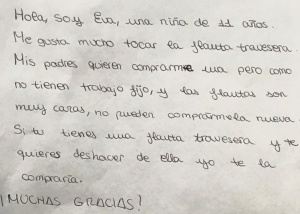 Hola, soy Eva, una niña de 11 años.
Me gusta mucho tocar la flauta travesera.
Mis padres quieren comprarme una pero como
no tienen trabajo fijo, y las flautas son
muy caras, no pueden comprármela nueva.
Si tu tienes una flauta travesera y te
quieres deshacer de ella yo te la
compraría.
¡MUCHAS GRACIAS!